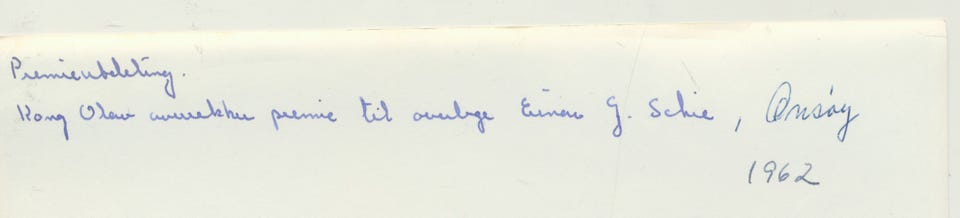 Premieutdeling.
Kong Olav overrekker premie til overlege Einar G. Schie, Onsøy
1962